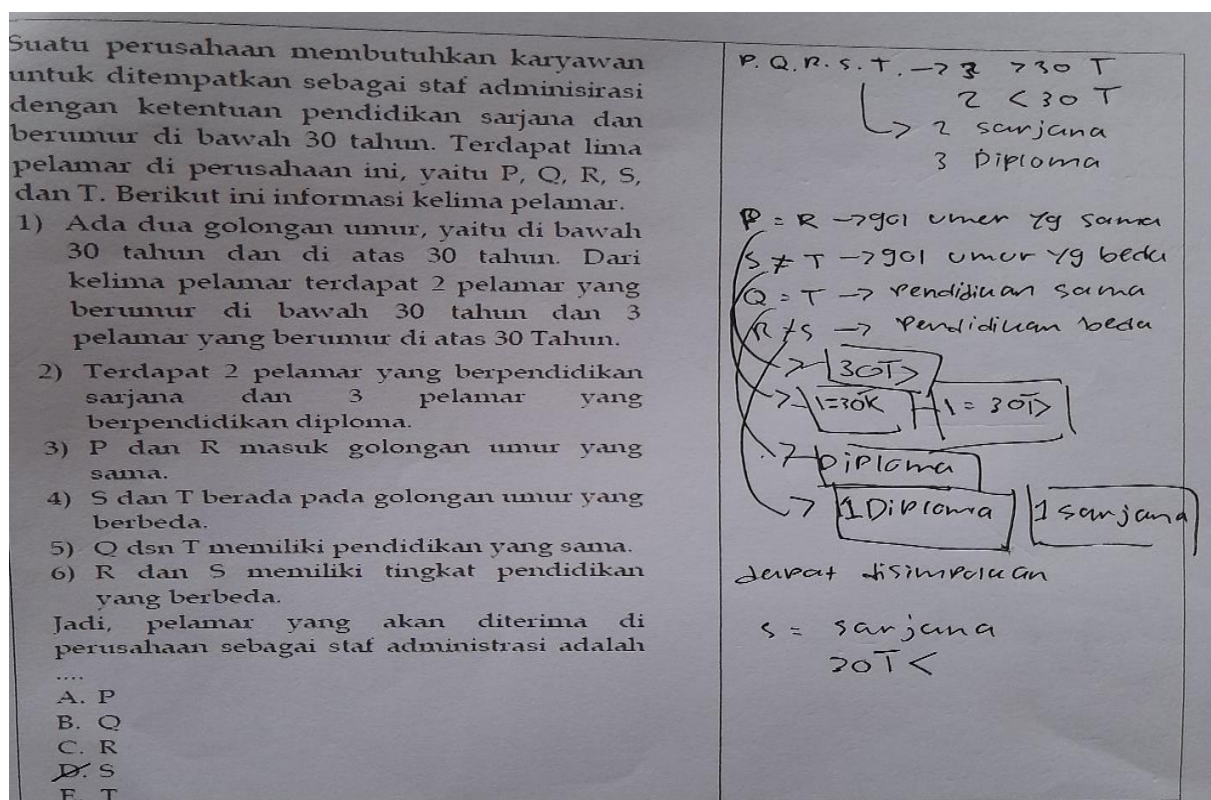 Suatu perusahaan membutuhkan karyawan
untuk ditempatkan sebagai staf adminisirasi
dengan ketentuan pendidikan sarjana dan
berumur di bawah 30 tahun. Terdapat lima
pelamar di perusahaan ini, yaitu P, Q, R, S,
dan T. Berikut ini informasi kelima pelamar.
1) Ada dua golongan umur, yaitu di bawah
30 tahun dan di atas 30 tahun. Dari
kelima pelamar terdapat 2 pelamar yang
berumur di bawah 30 tahun dan 3
pelamar yang berumur di atas 30 Tahun.
2) Terdapat 2 pelamar yang berpendidikan
sarjana dan 3 pelamar yang
berpendidikan diploma.
3) P dan R masuk golongan umur yang
sama.
4) S dan T berada pada golongan umur yang
berbeda.
5) Q dsn T memiliki pendidikan yang sama.
6) R dan S memiliki tingkat pendidikan
yang berbeda.
Jadi, pelamar yang akan diterima di
perusahaan sebagai staf administrasi adalah
....
A. P
B. Q
C. R
D. S
E. T
P. Q. R. S. T. -> 3 >30 T
2 <30 T
-> 2 sarjana
3 Diploma
P = R -> gol umur yg sama
S ≠ T -> gol umur yg beda
Q = T -> Pendidikan sama
R ≠ S -> Pendidikan beda
30T>
1=30K 1 = 30T>
Diploma
1 Diploma 1 sarjana
dapat disimpulkan
S = sarjana
30T <